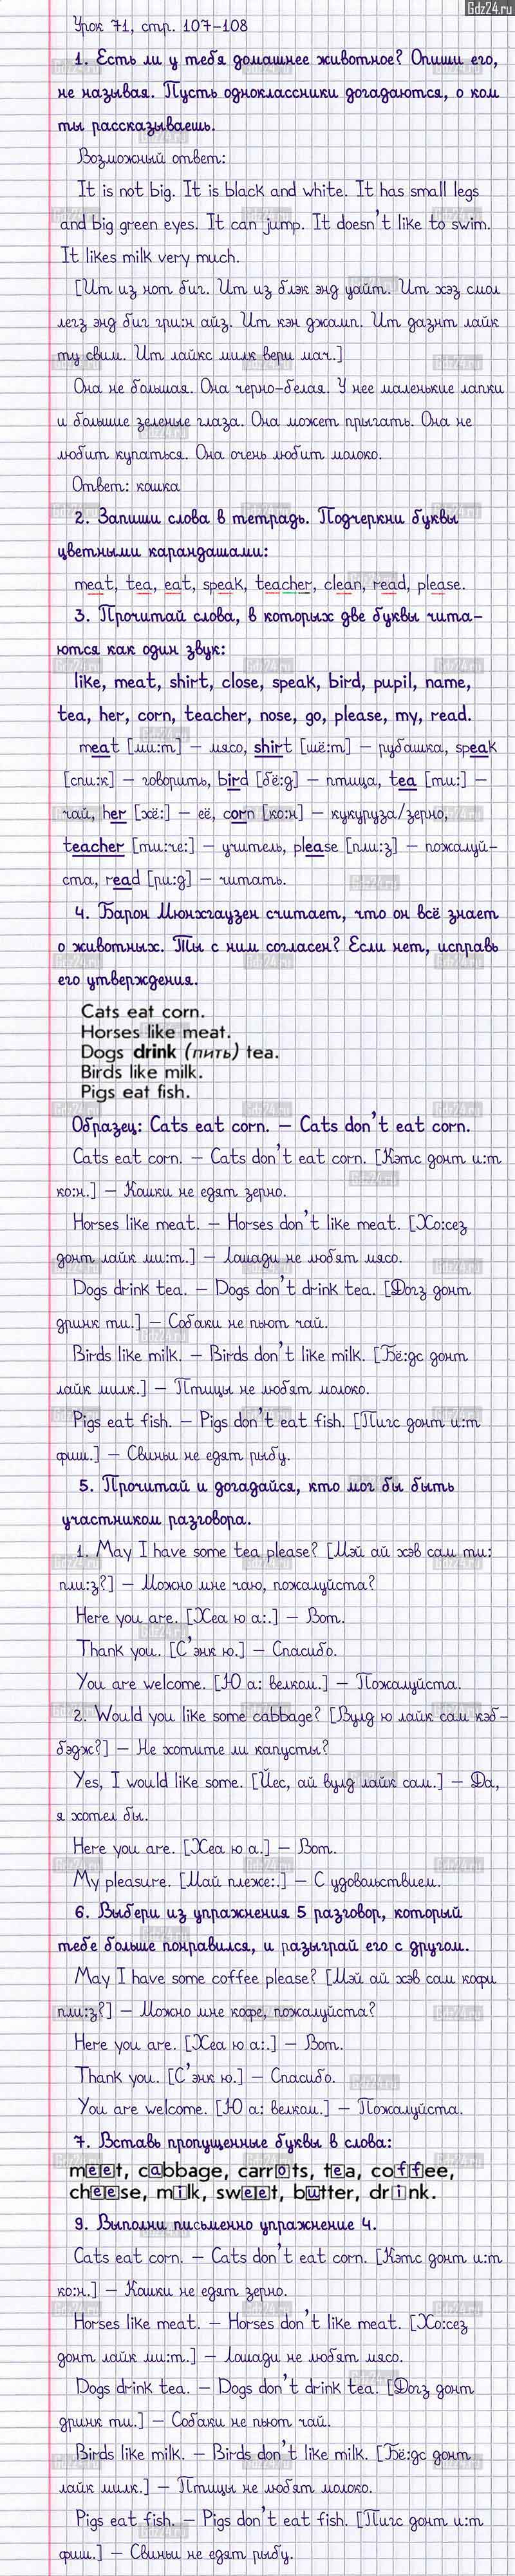 Gdz24.ru
Урок 71, стр. 107-108
1. Есть ли у тебя домашнее животное? Опиши его,
не называя. Пусть одноклассники догадаются, о ком
ты рассказываешь.
Возможный ответ:
It is not big. It is black and white. It has small legs
and big green eyes. It can jump. It doesn't like to swim.
It likes milk very much.
[Ит из нот биг. Ит из блэк энд уайт. Ит хэз смол
легз энд биг гри:н айз. Ит кэн джамп. Ит дазнт лайк
ту свим. Ит лайкс милк вери мач.]
Она не большая. Она черно-белая. У нее маленькие лапки
и большие зеленые глаза. Она может прыгать. Она не
любит купаться. Она очень любит молоко.
Ответ: кошка
2. Запиши слова в тетрадь. Подчеркни буквы
цветными карандашами:
meat, tea, eat, speak, teacher, clean, read, please.
3. Прочитай слова, в которых две буквы чита-
ются как один звук:
like, meat, shirt, close, speak, bird, pupil, name,
tea, her, corn, teacher, nose, go, please, my, read.
meat [ми:т] – мясо, shirt [шё:т] – рубашка, speak
[спи:к] – говорить, bird [бё:д] – птица, tea [ти:] –
чай, her [хё:] – её, corn [ко:н] – кукуруза/зерно,
teacher [ти:че:] – учитель, please [пли:з] – пожалуй-
ста, read [ри:д] – читать.
4. Барон Мюнхгаузен считает, что он всё знает
о животных. Ты с ним согласен? Если нет, исправь
его утверждения.
Cats eat corn.
Horses like meat.
Dogs drink (пить) tea.
Birds like milk.
Pigs eat fish.
Образец: Cats eat corn. – Cats don't eat corn.
Cats eat corn. – Cats don't eat corn. [Кэтс донт и:т
ко:н.] – Кошки не едят зерно.
Horses like meat. – Horses don't like meat. [Хо:сез
донт лайк ми:т.] – Лошади не любят мясо.
Dogs drink tea. – Dogs don't drink tea. [Догз донт
дринк ти.] – Собаки не пьют чай.
Birds like milk. – Birds don't like milk. [Бё:дс донт
лайк милк.] – Птицы не любят молоко.
Pigs eat fish. – Pigs don't eat fish. [Пигс донт и:т
фиш.] – Свиньи не едят рыбу.
5. Прочитай и догадайся, кто мог бы быть
участником разговора.
1. May I have some tea please? [Мэй ай хэв сам ти:
пли:з?] – Можно мне чаю, пожалуйста?
Here you are. [Хеа ю а:.] – Вот.
Thank you. [С'энк ю.] – Спасибо.
You are welcome. [Ю а: велком.] – Пожалуйста.
2. Would you like some cabbage? [Вулд ю лайк сам кэб-
бэдж?] – Не хотите ли капусты?
Yes, I would like some. [Йес, ай вулд лайк сам.] – Да,
я хотел бы.
Here you are. [Хеа ю а.] – Вот.
My pleasure. [Май плеже:.] – С удовольствием.
6. Выбери из упражнения 5 разговор, который
тебе больше понравился, и разыграй его с другом.
May I have some coffee please? [Мэй ай хэв сам кофи
пли:з?] – Можно мне кофе, пожалуйста?
Here you are. [Хеа ю а:.] – Вот.
Thank you. [С'энк ю.] – Спасибо.
You are welcome. [Ю а: велком.] – Пожалуйста.
7. Вставь пропущенные буквы в слова:
meet, cabbage, carrots, tea, coffee,
cheese, milk, sweet, butter, drink.
9. Выполни письменно упражнение 4.
Cats eat corn. – Cats don't eat corn. [Кэтс донт и:т
ко:н.] – Кошки не едят зерно.
Horses like meat. – Horses don't like meat. [Хо:сез
донт лайк ми:т.] – Лошади не любят мясо.
Dogs drink tea. – Dogs don't drink tea. [Догз донт
дринк ти.] – Собаки не пьют чай.
Birds like milk. – Birds don't like milk. [Бё:дс донт
лайк милк.] – Птицы не любят молоко.
Pigs eat fish. – Pigs don't eat fish. [Пигс донт и:т
фиш.] – Свиньи не едят рыбу.